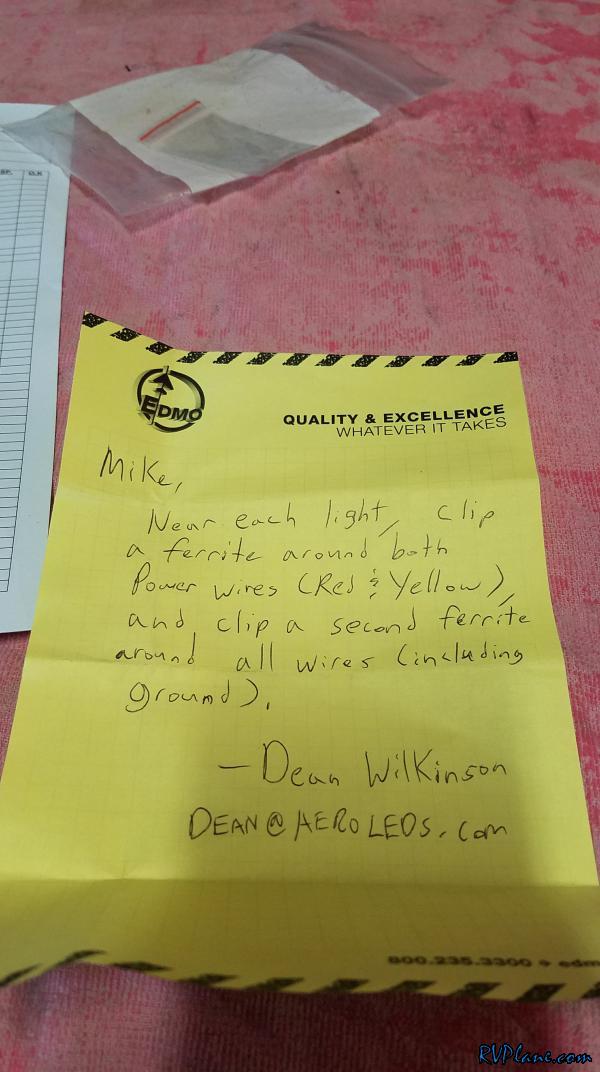 SP.
O.K
EDMO
QUALITY & EXCELLENCE
WHATEVER IT TAKES
Mike,
Near each light, clip
a ferrite around both
Power wires (Red & Yellow),
and clip a second ferrite
around all wires (including
ground).
— Dean Wilkinson
DEAN@AEROLEDS.com
800.235.3300
RVPlane.com